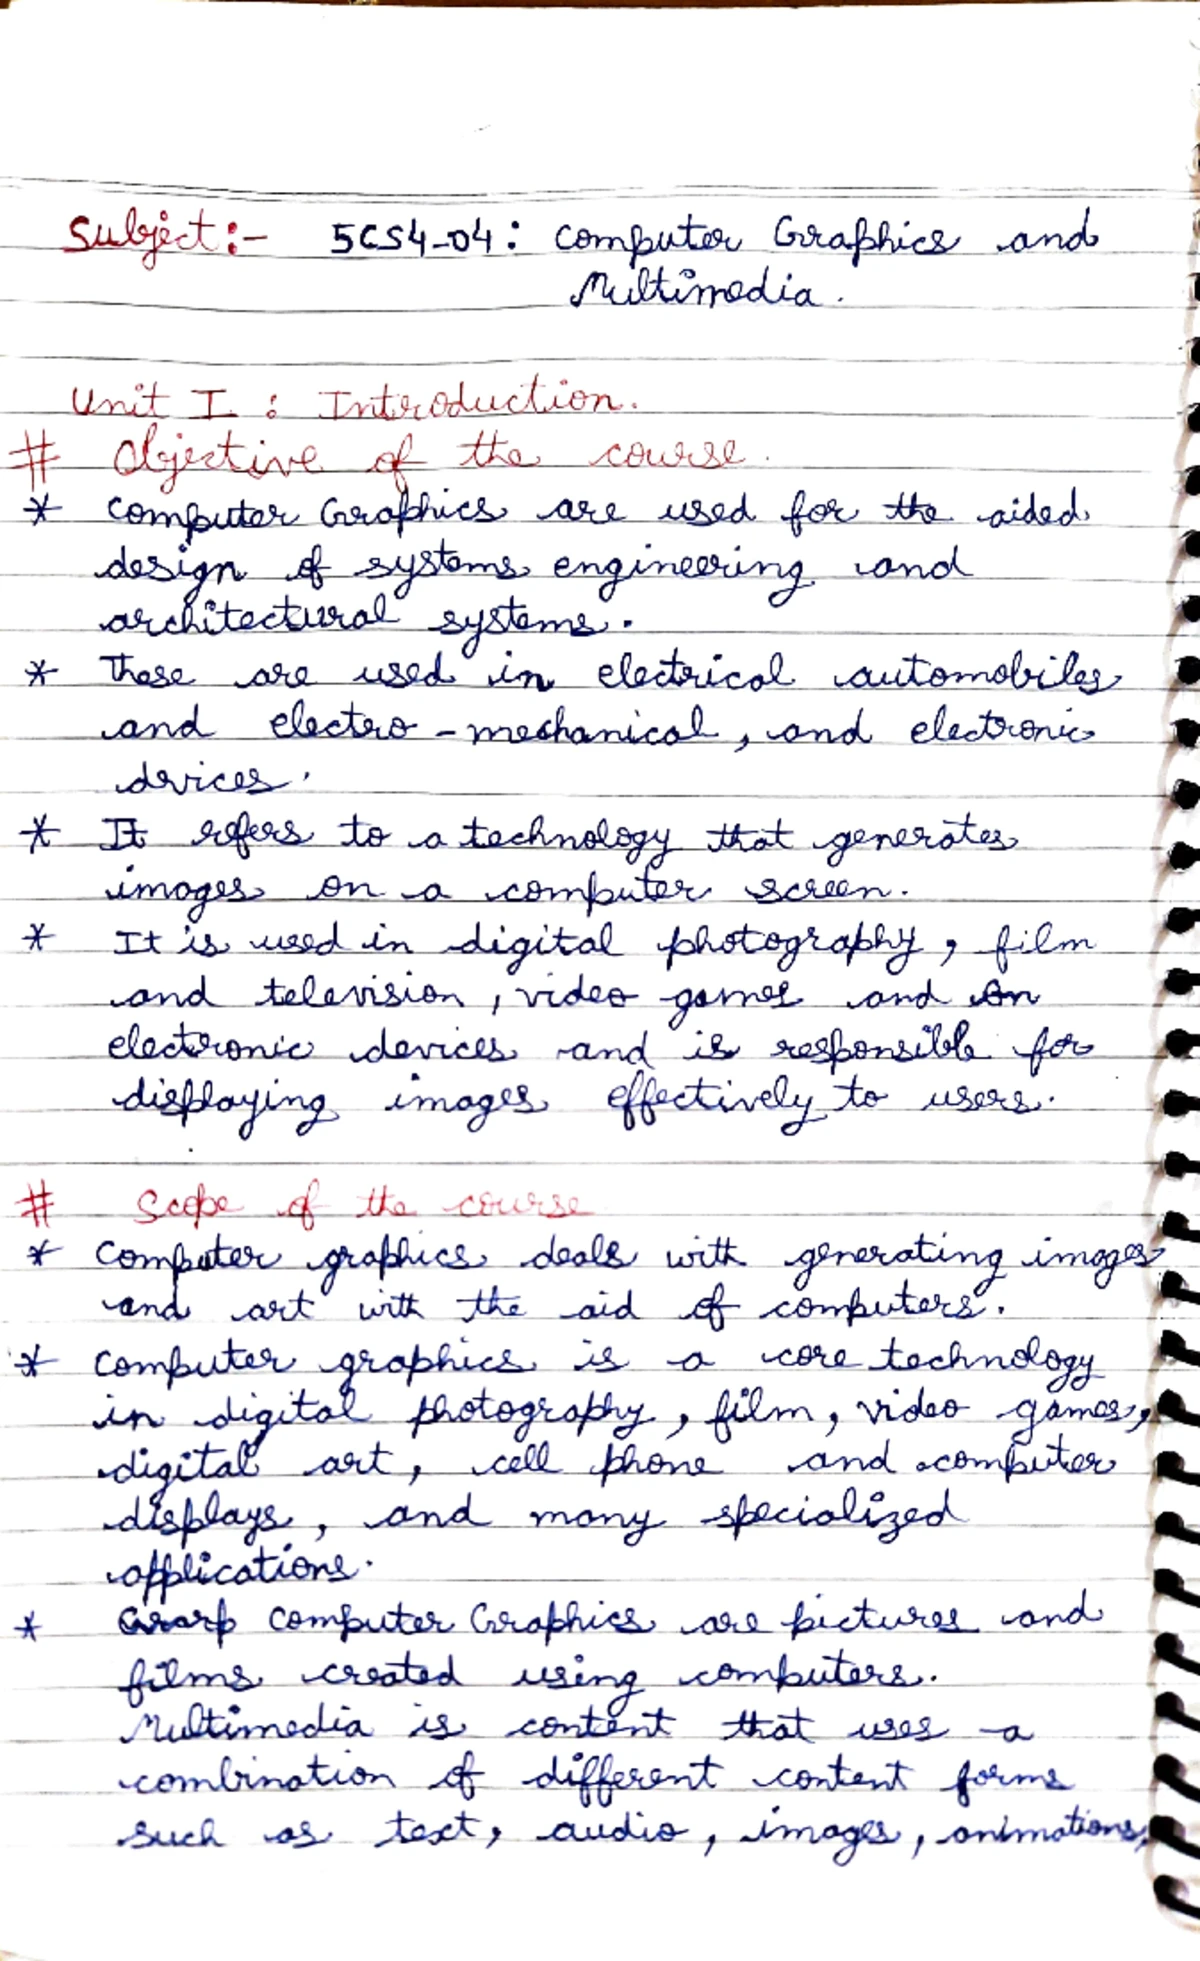 Subject:- 5CS4-04: Computer Graphics and
Multimedia.
Unit I : Introduction.
# Objective of the course.
* Computer Graphics are used for the aided
design of systems engineering and
architectural systems.
* These are used in electrical automobiles
and electro-mechanical, and electronic
devices.
* It refers to a technology that generates
images on a computer screen.
* It is used in digital photography, film
and television, video games and on
electronic devices and is responsible for
displaying images effectively to users.
# Scope of the course
* Computer graphics deals with generating images
and art with the aid of computers.
* Computer graphics is a core technology
in digital photography, film, video games,
digital art, cell phone and computer
displays, and many specialized
applications.
* Computer Graphics are pictures and
films created using computers.
Multimedia is content that uses a
combination of different content forms
such as text, audio, images, animations,